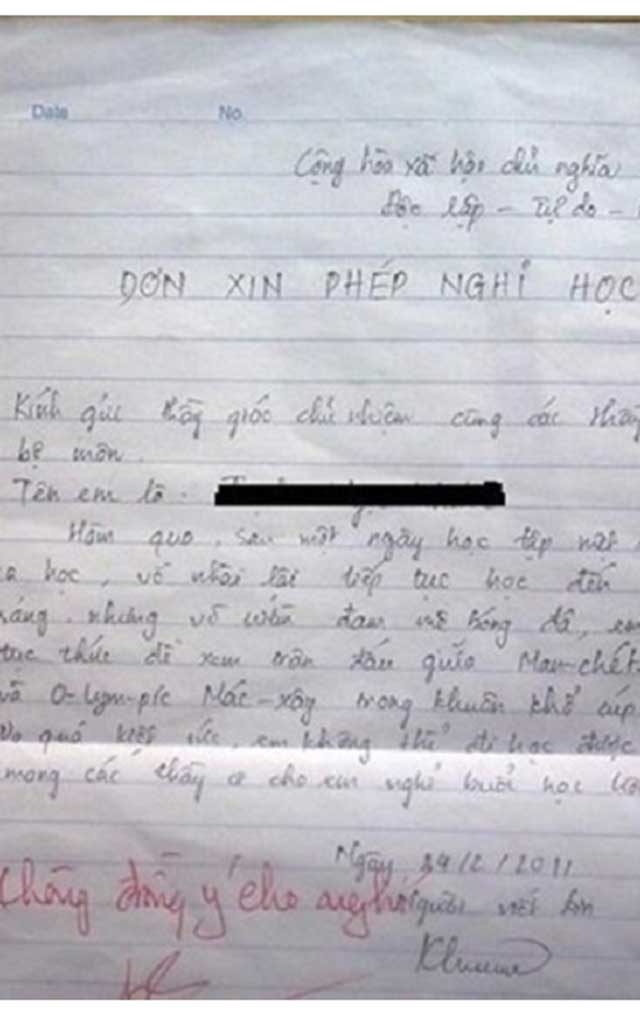 Date No
Cộng hòa xã hội chủ nghĩa
Độc lập - Tự do -
ĐƠN XIN PHÉP NGHỈ HỌC
Kính gửi thầy giáo chủ nhiệm cùng các thầy
bộ môn.
Tên em là.
Hôm qua, sau một ngày học tập
học, về nhà lại tiếp tục học đến
sáng. nhưng vì đam mê bóng đá, em
tục thức để xem trận đấu giữa Man-chét
và O-lym-píc Mác-xây trong khuôn khổ cúp
quá kiệt sức, em không thể đi học được
mong các thầy cô cho em nghỉ buổi học
Ngày 24/2/2011
không đồng ý cho nghỉ
Người viết đơn